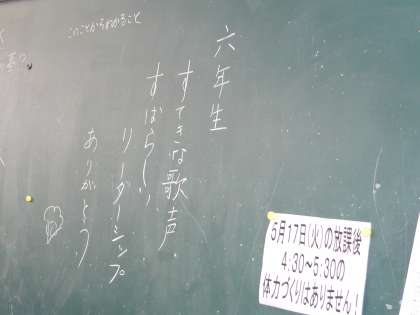 このことからわかること
六年生
すてきな歌声
すばらしい
リーダーシップ
ありがとう
5月17日(火)の放課後
4:30~5:30の
体力づくりはありません!